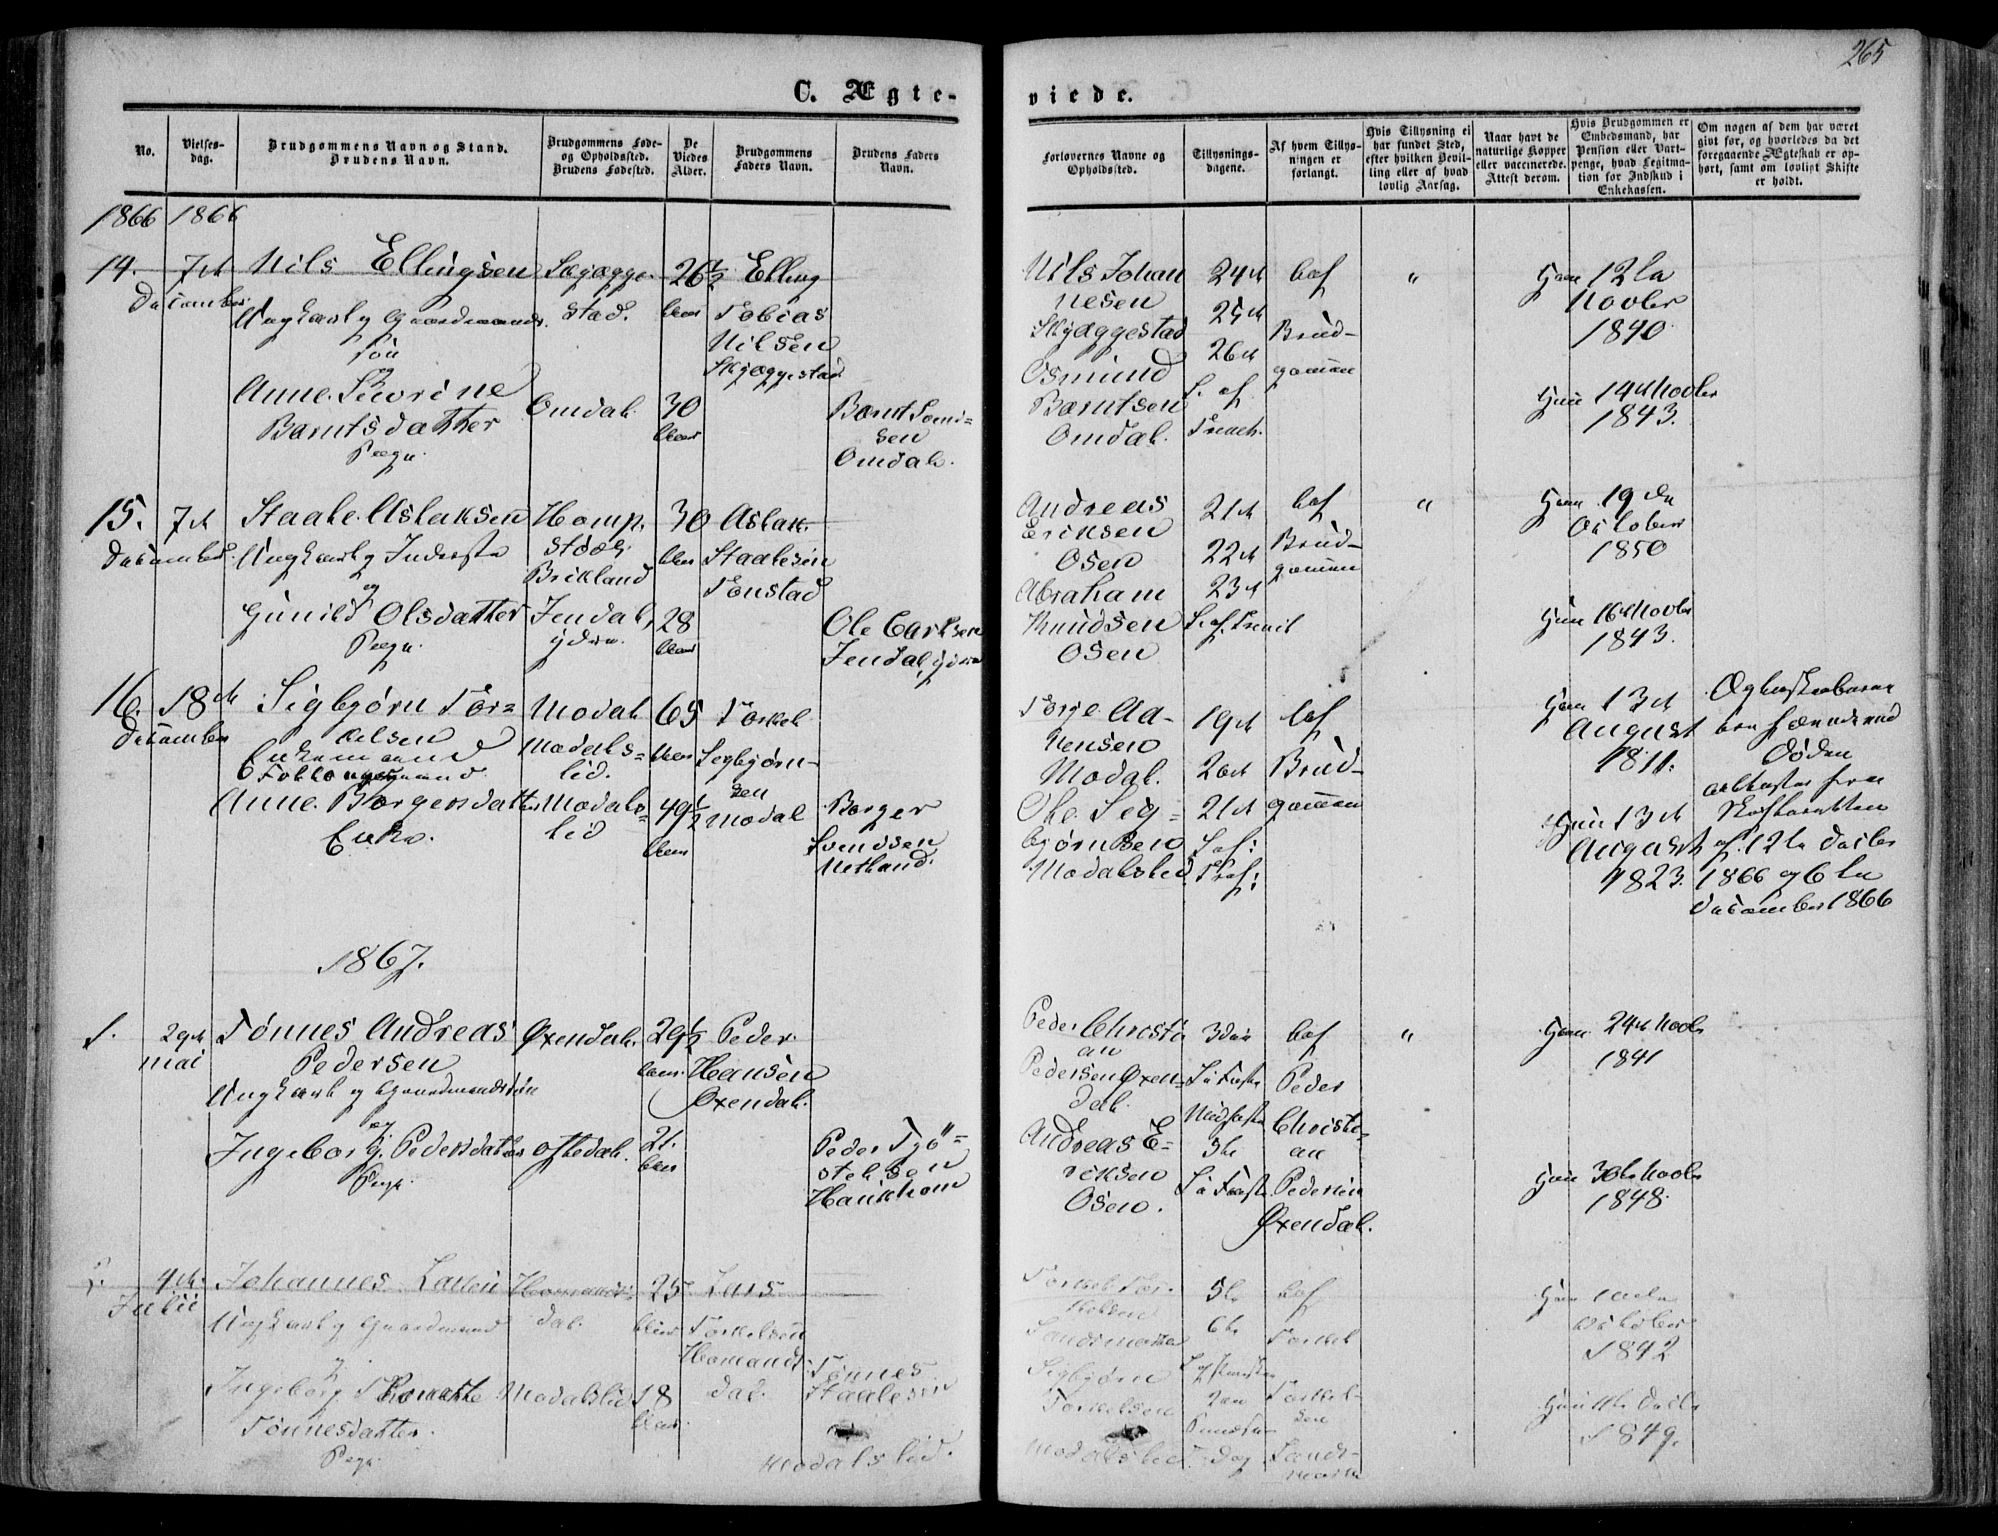 265
C. Ægte-
viede.
No.
Vielses-
dag.
Brudgommens Navn og Stand.
Brudens Navn.
Brudgommens Føde-
og Opholdssted.
Brudens Fødested.
De
Viedes
Alder.
Brudgommens
Faders Navn.
Brudens Faders
Navn.
Forlovernes Navne og
Opholdssted.
Tillysnings-
dagene.
Af hvem Tillys-
ningen er
forlangt.
Hvis Tillysning ei
har fundet Sted,
efter hvilken Bevil-
ling eller af hvad
lovlig Aarsag.
Naar havt de
naturlige Kopper
eller vaccinerede.
Attest derom.
Hvis Brudgommen er
Embedsmand, har
Pension eller Vart-
penge, hvad Legitima-
tion for Indskud i
Enkekassen.
Om nogen af dem har været
gift før, og hvorledes da det
foregaaende Ægteskab er op-
hørt, samt om lovligt Skifte
er holdt.
1866 1866
14. 7de
December
Nils Ellingsen
Ungkarl og Gaardmands-
søn
og
Anne Severine
Berntsdatter
Pige.
Skjægge-
stad.
Omdal.
26½
Aar
30
Aar
Elling
Tobias
Nilsen
Skjæggestad
Bernt Tomi-
sen
Omdal.
Nils Johan
nesen
Skjæggestad
Osmund
Berntsen
Omdal.
24de
25de
26de
S. ef.
Trinit.
af
Brud-
gommen
"
Ham 12te
Novbr
1840.
Hun 14de Novbr
1843.
15. 7de
December
Staale Aslaksen
Ungkarl og Inderste
og
Gunild Olsdatter
Pige.
Homp,
Brekland
Jendal,
ydre.
30
Aar
28
Aar
Aslak
Staalesen
Tonstad
Ole Carlsen
Jendal, ydre
Andreas
Eriksen
Osen
Abraham
Knudsen
Osen
21de
22de
23de
S. ef. Trinit
af
Brud-
gommen
"
Ham 19de
October
1850
Hun 16de Novbr
1843.
16. 18de
December
Sigbjørn Tor-
kelsen
Enkemand
Anne Børgersdatter
Enke.
Modal
Modals-
lid.
Modals-
lid
65
Aar
49½
Aar
Torkel
Sigbjørn-
sen
Modal
Børger
Svendsen
Netland.
Torge Aa-
nensen
Modal.
Ole Sig-
bjørnsen
Modalslid
19de
20de
21de
S. ef:
Tref:
af
Brud-
gommen
Ham 13de
August
1811.
Hun 13de
August
1823.
Døden
Attester fra
Skifteretten
af 12te Decbr
1866 og 6te
December 1866
1867.
1. 29de
Mai
Tønnes Andreas
Pedersen
Ungkarl og Gaardmandssøn
og
Ingeborg Pedersdatter
Pige.
Øxendal.
Oftedal.
29½
Aar
21.
Aar
Peder
Hansen
Øxendal.
Peder Tjø-
stelsen
Haukhom
Peder Christi
an
Pedersen Øxen-
dal.
Andreas E-
riksen
Osen.
3die
S. i Faste
Midfaste
5te
S. i Faste
af
Peder
Christi-
an
Pedersen
Øxendal.
"
Ham 24de Novbr
1841
Hun 30te Novbr
1848.
2. 4de
Julii
Johannes Larsen
Ungkarl og Gaardmand
og
Ingeborg Thomasse
Tønnesdatter.
Pige.
Homands-
dal.
Modalslid
25
Aar
18
Aar
Lars
Torkelsen
Homands-
dal.
Tønnes
Staalesen
Modalslid.
Torkel Tor-
kelsen
Sandsmark
Sigbjørn
Torkelsen
Modalslid
5te
6te
2den
Pindse-
Dag
af
Torkel
Torkel-
sen
Sands-
mark
Ham
October
1842
Hun Decbr
1849.